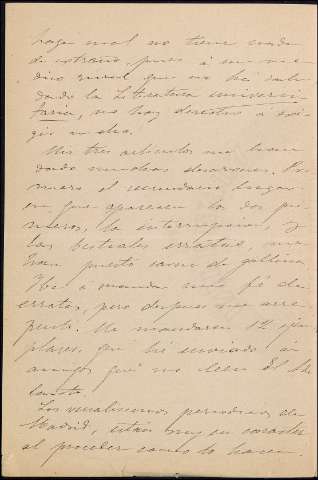 haga mal no tiene nada
de extraño, pues á un mé-
dico rural que no ha salu-
dado la Literatura universi-
taria, no hay derecho á exi-
gir mucho.
Mis tres artículos me han
dado muchos disgustos. Pri-
mero el secundario lugar
en que aparecen los dos pri-
meros, la interrupción, y
las bestiales erratas, me
han puesto carne de gallina.
Iba á mandar una fé de
erratas, pero despues me arre-
pentí. Me mandaron 12 ejem-
plares, que he enviado á
amigos que no leen El
Los periódicos de
Madrid, están muy en carácter
al proceder como lo hacen.